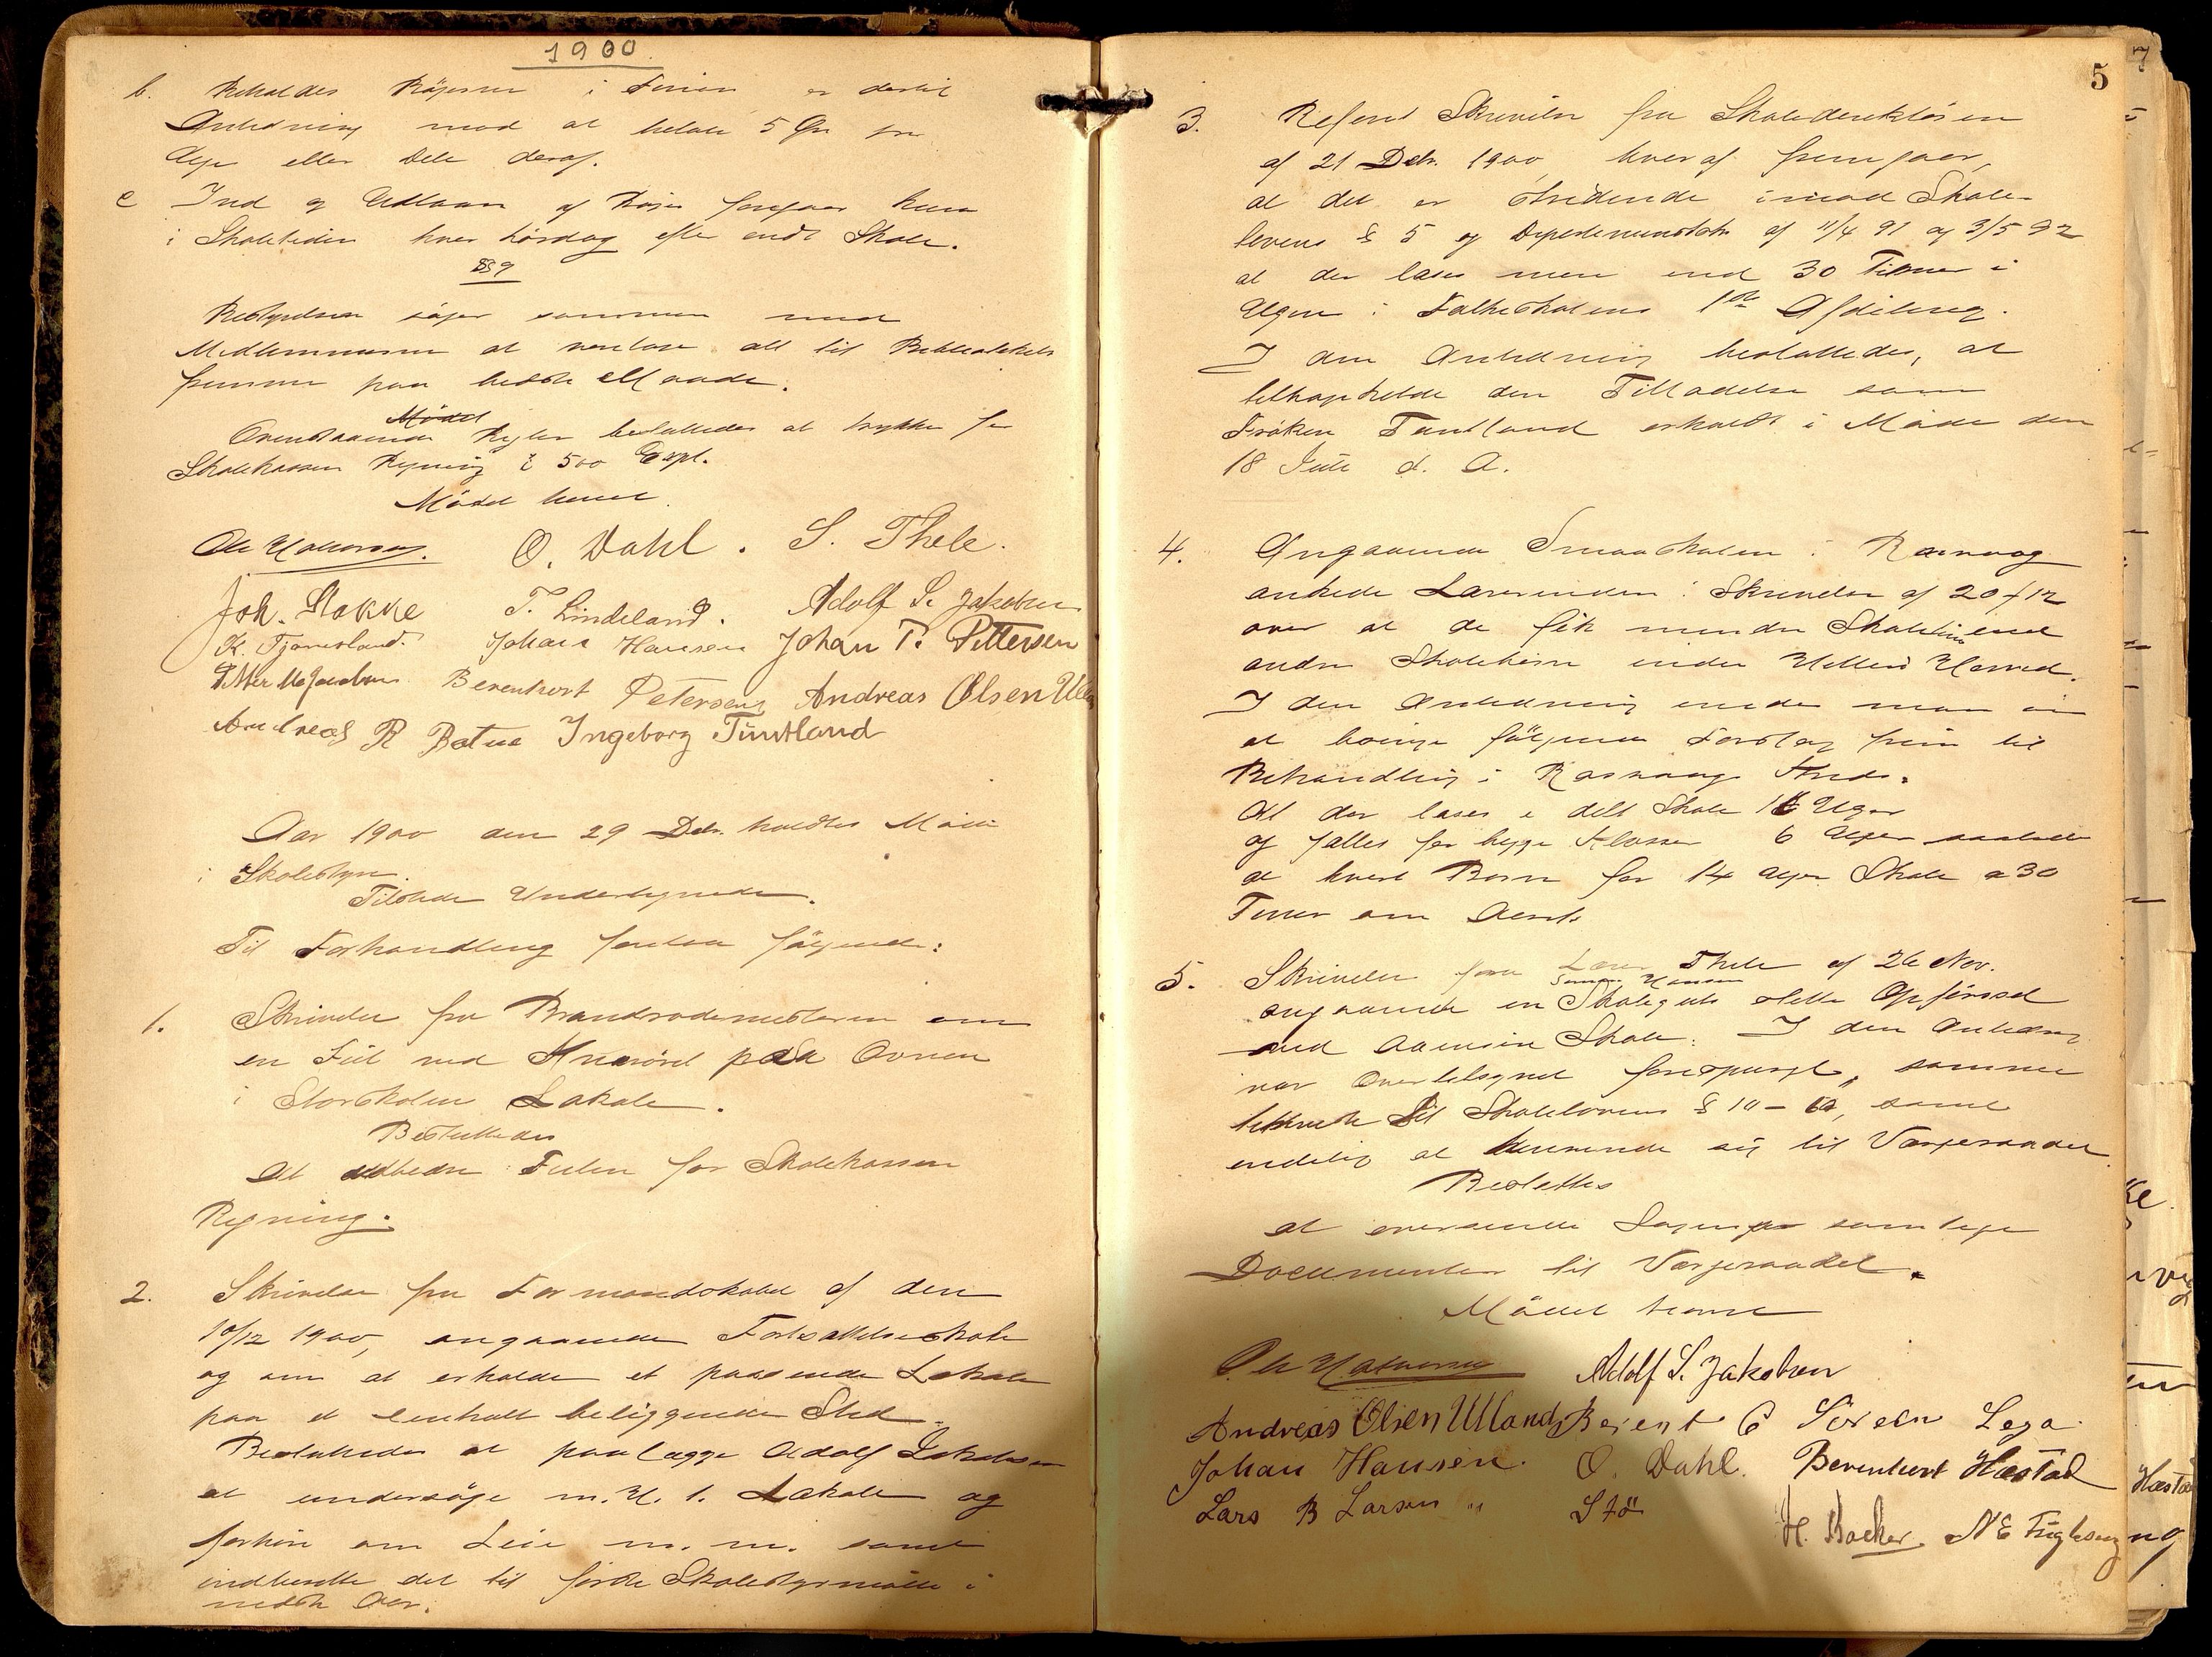 1900.
b. Beholdes Bøgerne i Ferien er dertil
Anledning mod at betale 5 Øre pr
Uge eller Dele deraf.
c Ind og Udlaan af Bøger foregaar kun
i Skoletiden hver Lørdag efter endt Skole.
§ 9
Bestyrelsen søger sammen med
Medlemmerne at varetage alt til Bibliothekets
fremme paa bedste Maade.
Ovenstaaende Regler besluttedes at trykke for
Skolekassens Regning i 500 Expl.
Mødet hævet.
O. Dahl. S. Thele.
Joh. Stokke T. Lindeland. Adolf S. Jakobsen
K. Tjømsland. Johan Hansen Johan T. Pettersen
Berenhort Petersen, Andreas Olsen
Andreas R Ingeborg Tuntland
Aar 1900 den 29 Debr. holdtes Møde
i Skolestyre.
Tilstede Undertegnede.
Til Forhandling forelaa følgende:
1. Skrivelse fra Brandrodemesteren om
en Feil ved Knærøret paa Ovnen
i Storskolens Lokale.
Besluttedes
At udbedre Feilen for Skolekassens
Regning.
2. Skrivelse fra Formandskabet af den
10/12 1900, angaaende Fortsættelsesskole
og om at erholde et passende Lokale
paa et centralt beliggende Sted.
Besluttedes at paalægge Adolf Jakobsen
at undersøge m. H. t. Lokale og
forhøre om Leie m. m. samt
indberette det til første Skolestyremøde i
næste Aar.
5
3. Referert Skrivelse fra Skoledirektøren
af 21 Debr. 1900, hveraf fremgaar,
at det er stridende imod Skole-
lovens § 5 og Departementsskr. af 11/4 91 og 3/5 92
at der læses mere end 30 Timer i
Ugen i Folkeskolens 1ste Afdeling.
I den Anledning besluttedes, at
tilbagekalde den Tilladelse som
Frøken Tuntland erholdt i Møde den
18 Juli d. A.
4. Angaaende Smaaskolen i Rasvaag
ankede Lærerinden i Skrivelse af 20/12
over at de fik mindre Skoletime end
andre Skolebørn inden Hitterø Herred.
I den Anledning enedes man om
at bringe følgende Forslag frem til
Behandling i Rasvaags Kreds.
At der læses i delt Skole 16 Uger
og fælles for begge Klasser 6 Uger saaledes
at hvert Barn faar 14 Uger Skole a 30
Timer om Aaret.
5. Skrivelse fra Lærer Thele af 26 Nov.
angaaende en Skolegut slette Opførsel
ved Aaensire Skole. I den Anledning
var Overtilsynet forespurgt, samme
henviste til Skolelovens § 10 – 12, samt
endelig at henvende sig til Værgeraadet.
Besluttes
at oversende Sagens samtlige
Documenter til Værgeraadet.
Mødet hævet
Adolf S. Jakobsen
Andreas Olsen Uland, Berent C Sørsen Lega.
Johan Hansen. O. Dahl. Berenhert Hæstad
Lars B Larsen